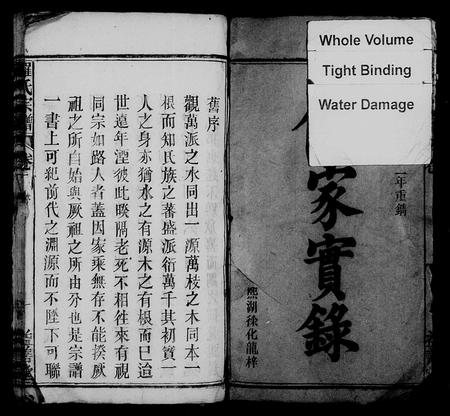 Whole Volume
Tight Binding
Water Damage
二年重鐫
家實錄
熙湖徐化龍梓
舊序
觀萬派之水同出一源萬枝之木同本一
根而知氏族之蕃盛派衍萬千其初實一
人之身亦猶水之有源木之有根而已迨
世遠年湮彼此暌隔老死不相徃來有視
同宗如路人者蓋因家乘無存不能揆厥
祖之所自始與厥祖之所由分也是宗譜
一書上可紀前代之淵源而不墜下可聯
羅氏宗譜